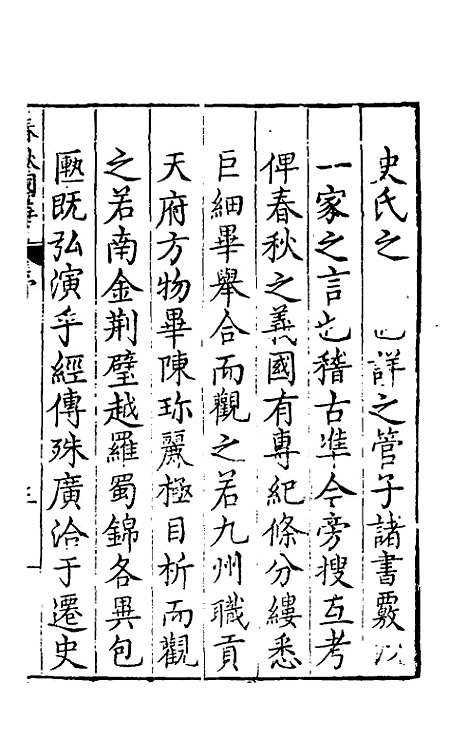 史氏之 也詳之管子諸書覈以
一家之言也稽古準今旁搜互考
俾春秋之義國有專紀條分縷悉
巨細畢舉合而觀之若九州職貢
天府方物畢陳珎麗極目析而觀
之若南金荆璧越羅蜀錦各異包
匭既弘演乎經傳殊廣洽于遷史
春秋國華 序 三